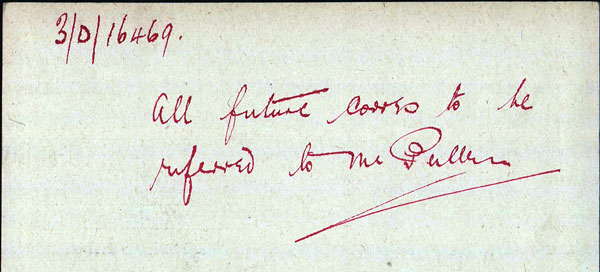 3/D/16469.
All future corres to be
referred to Mr Pullen